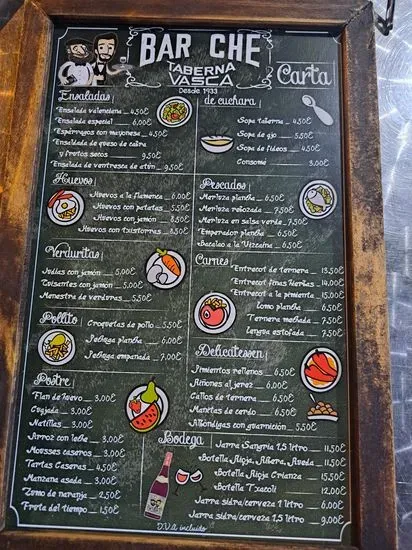 BAR CHE
TABERNA
VASCA
Desde 1933
Carta
Ensaladas
Ensalada valenciana 4,50€
Ensalada especial 6,00€
Espárragos con mayonesa 4,50€
Ensalada de queso de cabra
y frutos secos 9,50€
Ensalada de ventresca de atún 9,50€
de cuchara
Sopa taberna 4,50€
Sopa de ajo 5,50€
Sopa de fideos 4,50€
Consomé 3,00€
Huevos
Huevos a la flamenca 6,00€
Huevos con patatas 5,50€
Huevos con jamón 8,50€
Huevos con txistorras 8,50€
Pescados
Merluza plancha 6,00€
Merluza rebozada 7,50€
Merluza en salsa verde 7,50€
Emperador plancha 6,00€
Bacalao a la Vizcaína 6,50€
Verduritas
Judías con jamón 5,00€
Guisantes con jamón 5,00€
Menestra de verduras 5,50€
Carnes
Entrecot de ternera 13,50€
Entrecot finas hierbas 14,00€
Entrecot a la pimienta 15,00€
Lomo plancha 6,50€
Ternera mechada 7,50€
Lengua estofada 7,50€
Pollito
Croquetas de pollo 5,50€
Pechuga plancha 6,00€
Pechuga empanada 7,00€
Delicatessen
Pimientos rellenos 6,50€
Riñones al jerez 6,00€
Callos de ternera 6,50€
Manitas de cerdo 6,50€
Albóndigas con guarnición 5,50€
Postre
Flan de huevo 3,00€
Cuajada 3,00€
Natillas 3,00€
Arroz con leche 3,00€
Mousses caseros 3,00€
Tartas Caseras 4,50€
Manzana asada 3,00€
Zumo de naranja 2,50€
Fruta del tiempo 1,50€
Bodega
Jarra Sangría 1,5 litro 11,50€
Botella Rioja, Ribera, Rueda 11,50€
Botella Rioja Crianza 15,50€
Botella Txacoli 12,00€
Jarra sidra/cerveza 1 litro 6,00€
Jarra sidra/cerveza 1,5 litro 9,00€
I.V.A incluido